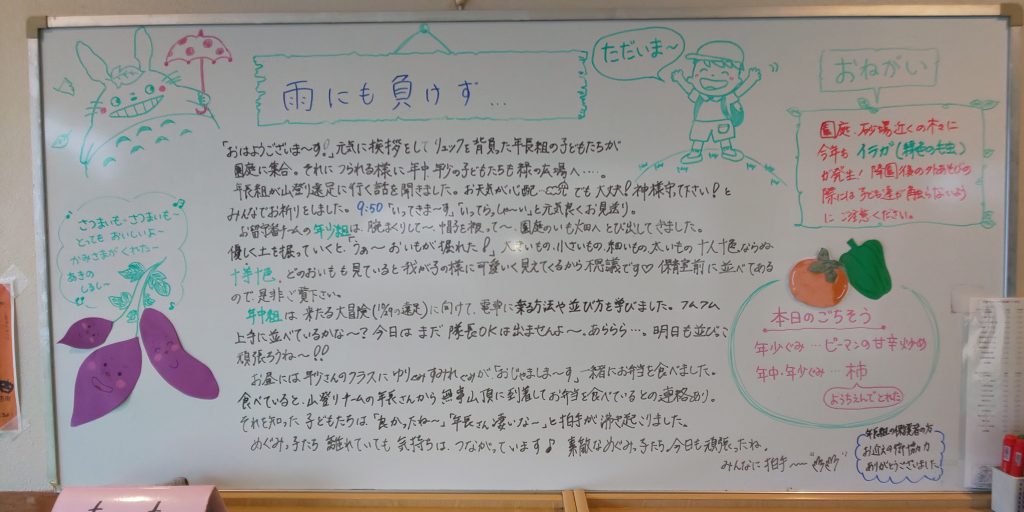 雨にも負けず…
ただいま～
おねがい
園庭、砂場近くの木々に
今年も イラガ(緑色の毛虫)
が発生! 降園後の外あそびの
際には子ども達が触らないよう
に ご注意ください。
さつまいも～さつまいも～
とっても おいしいよ～
かみさまが くれた～
あきの
しるし～
「おはようございま～す!」元気に挨拶をして リュックを背負った年長組の子どもたちが
園庭に集合。それに つられる様に 年中 年少の子どもたちも 様の広場へ…。
年長組が山登り遠足に行く話を聞きました。お天気が心配… でも 大丈夫!神様守って下さい!と
みんなでお祈りをしました。9:50「いってきま～す」「いってらっしゃ～い」と元気良くお見送り。
お留守番チームの年少組は、腕まくりして～、帽子を被って～、園庭のいも畑へ とび出して きました。
優しく土を掘っていくと、「うわ～ おいもが掘れた!」 大きいもの、小さいもの、細いもの、太いもの 十人十色ならぬ
十芋十色。どのおいもも 見ていると 我が子の様に可愛いく見えてくるから不思議です♡ 保育室前に 並べてある
ので是非ご覧下さい。
年中組は 来たる大冒険( の遠足)に向けて、電車に乗る方法や並び方を学びました。フムフム
上手に並べているかな～? 今日は まだ 隊長OKは出ませんよ～。あららら…。明日も並びっこ
頑張ろうね～!!
お昼には 年少さんのクラスに ゆりぐみすみれぐみが「おじゃましま～す」一緒にお弁当を食べました。
食べていると、山登りチームの年長さんから 無事山頂に到着してお弁当を食べているとの連絡あり。
それを知った 子どもたちは「良かったね～」「年長さん凄いな～」と拍手が沸き起こりました。
めぐみっ子たち 離れていても 気持ちは つながっています♪ 素敵なめぐみっ子たち、今日も頑張ったね。
みんなに 拍手～ "パチパチ"
本日のごちそう
年少ぐみ…ピーマンの甘辛炒め
年中・年少ぐみ…柿
ようちえんでとれた
年長組の保護者の方
お迎えの御協力
ありがとうございました